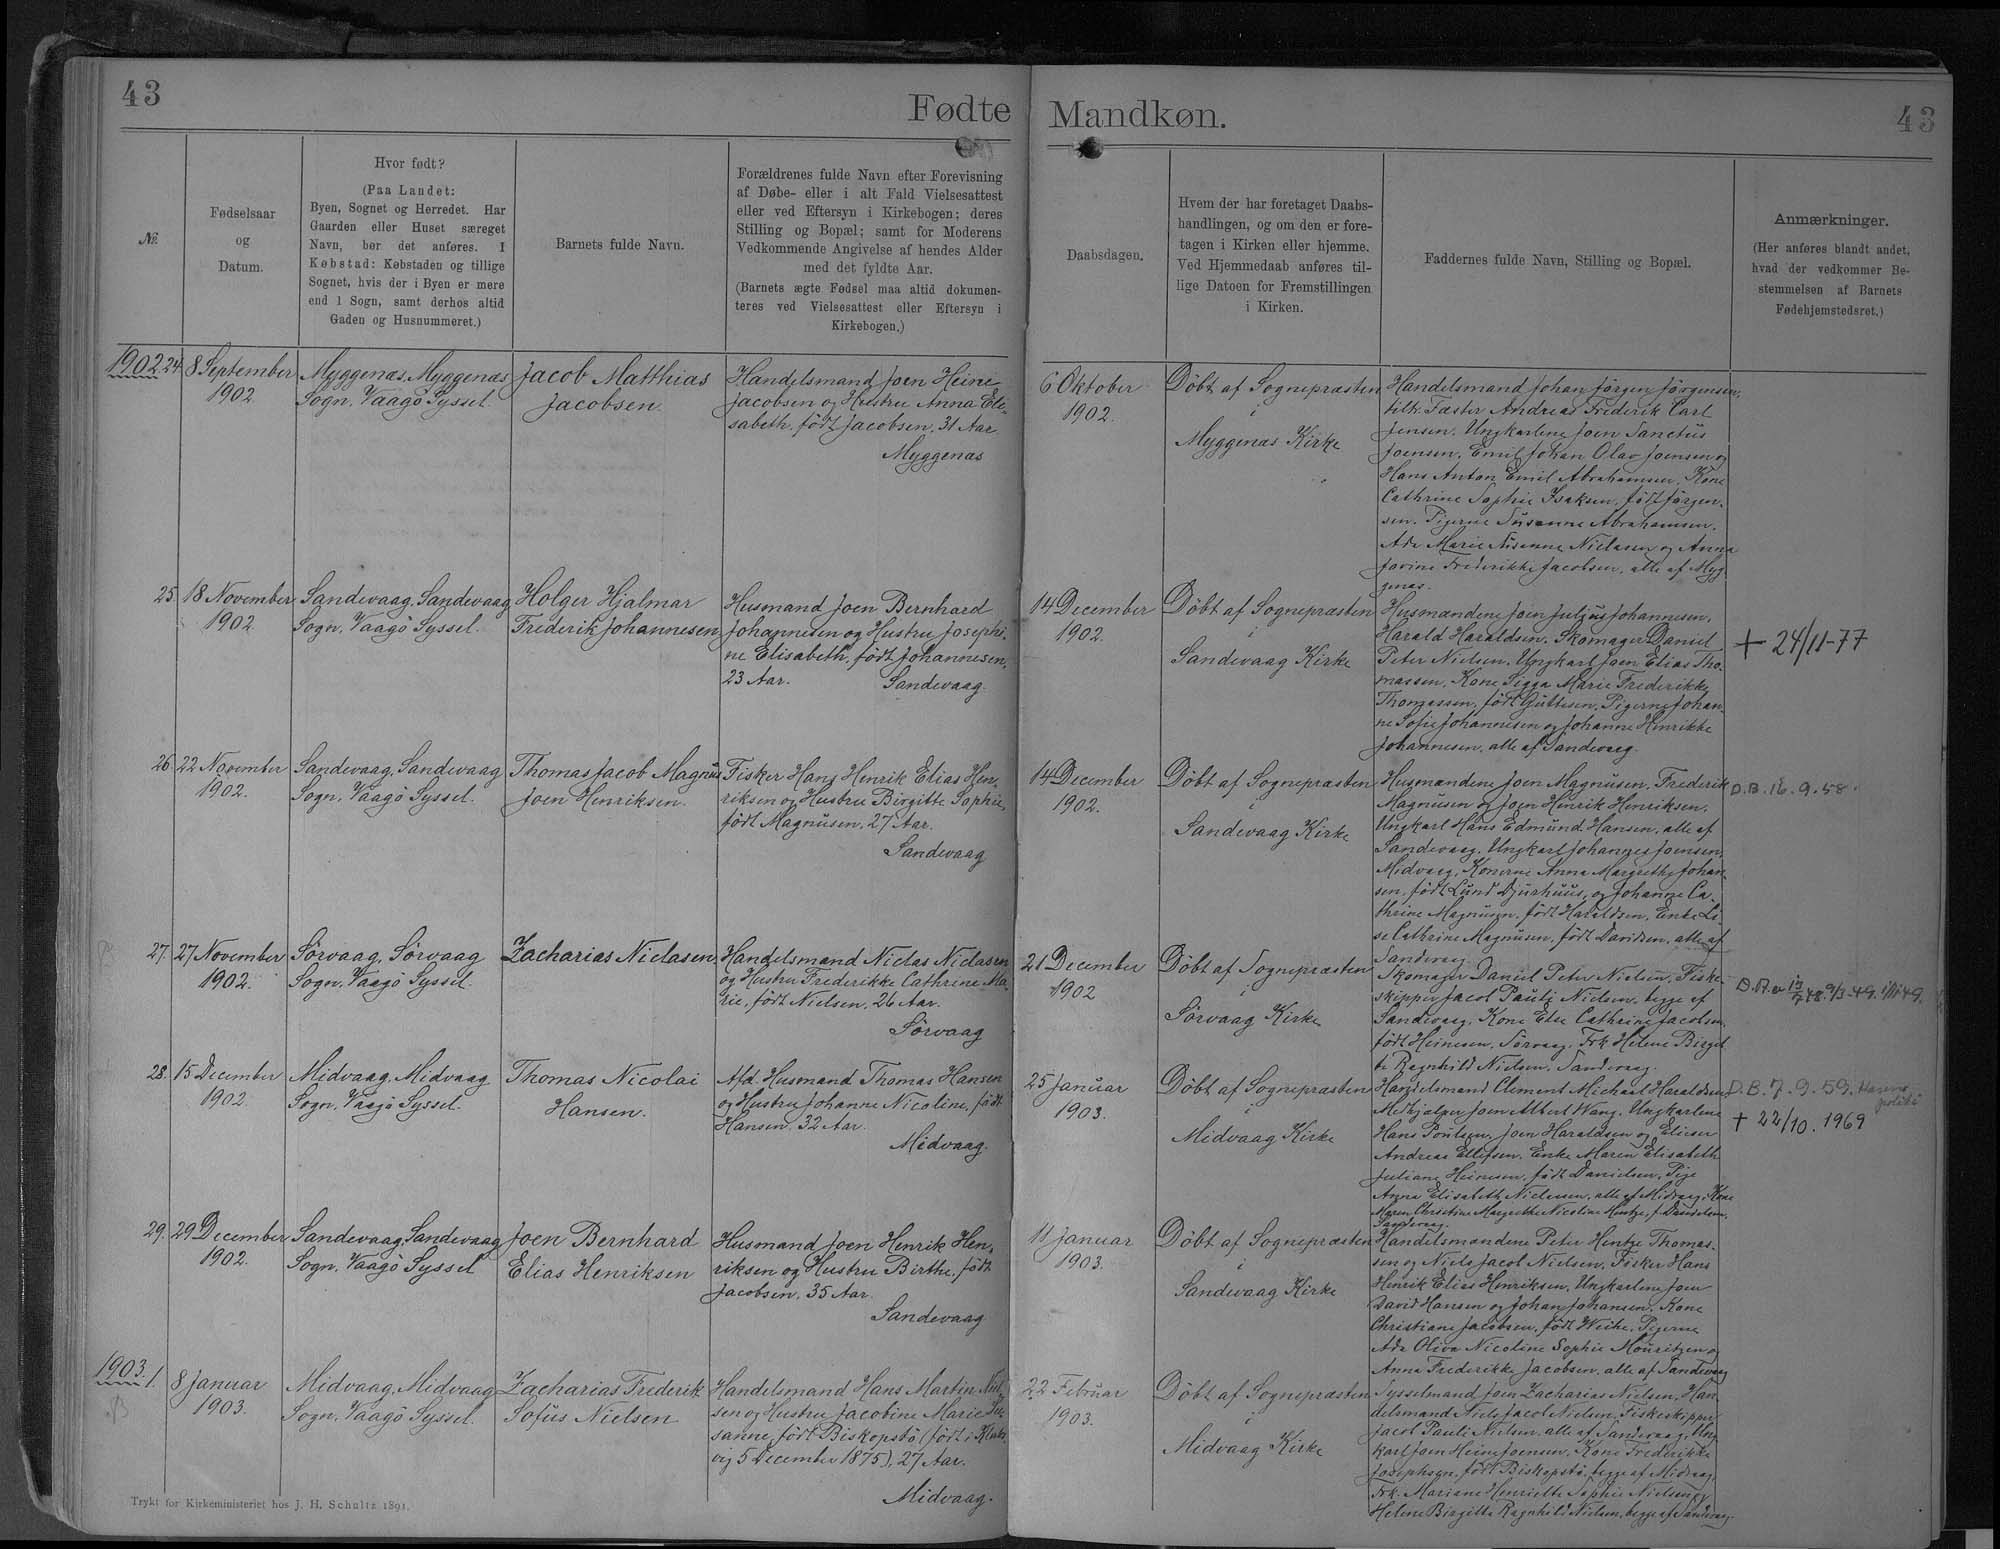 43
Fødte
Mandkøn.
43
№.
Fødselsaar
og
Datum.
Hvor født?
(Paa Landet:
Byen, Sognet og Herredet. Har
Gaarden eller Huset særeget
Navn, bør det anføres. I
Købstad: Købstaden og tillige
Sognet, hvis der i Byen er mere
end 1 Sogn, samt derhos altid
Gaden og Husnummeret.)
Barnets fulde Navn.
Forældrenes fulde Navn efter Forevisning
af Døbe- eller i alt Fald Vielsesattest
eller ved Eftersyn i Kirkebogen; deres
Stilling og Bopæl; samt for Moderens
Vedkommende Angivelse af hendes Alder
med det fyldte Aar.
(Barnets ægte Fødsel maa altid dokumen-
teres ved Vielsesattest eller Eftersyn i
Kirkebogen.)
Daabsdagen.
Hvem der har foretaget Daabs-
handlingen, og om den er fore-
tagen i Kirken eller hjemme.
Ved Hjemmedaab anføres til-
lige Datoen for Fremstillingen
i Kirken.
Faddernes fulde Navn, Stilling og Bopæl.
Anmærkninger.
(Her anføres blandt andet,
hvad der vedkommer Be-
stemmelsen af Barnets
Fødehjemstedsret.)
1902. 24.
8 September
1902.
Myggenæs, Myggenæs
Sogn, Vaagö Syssel.
Jacob Matthias
Jacobsen
Handelsmand Joen Heine
Jacobsen og Hustru Anna Eli-
sabeth, født Jacobsen, 31 Aar
Myggenæs
6 Oktober
1902.
Döbt af Sognepræsten
i
Myggenæs Kirke
Handelsmand Johan Jörgen Jörgensen,
tilk. Fæster Andreas Frederik Carl
Jensen, Ungkarlene Joen Sanctus
Joensen, Emil Johan Olav Joensen og
Hans Anton Emil Abrahamsen, Kone
Cathrine Sophie Isaksen, født Jörgen-
sen, Pigerne Susanne Abrahamsen,
Ada Marie Susanne Niclasen og Anna
Javine Frederikke Jacobsen, alle af Myg-
genæs.
25.
18 November
1902.
Sandevaag, Sandevaag
Sogn, Vaagö Syssel.
Holger Hjalmar
Frederik Johannesen
Husmand Joen Bernhard
Johannesen og Hustru Josephi-
ne Elisabeth, født Johannesen,
23 Aar.
Sandevaag.
14 December
1902.
Döbt af Sognepræsten
i
Sandevaag Kirke
Husmændene Joen Julius Johannesen,
Harald Haraldsen, Skomager Daniel
Peter Nielsen, Ungkarl Joen Elias Tho-
massen, Kone Sigga Marie Frederikke
Thomassen, født Guttesen, Pigerne Johan-
ne Sofie Johannesen og Johanne Henrikke
Johannesen, alle af Sandevaag.
+ 24/11-77
26.
22 November
1902.
Sandevaag, Sandevaag
Sogn, Vaagö Syssel.
Thomas Jacob Magnus
Joen Henriksen.
Fisker Hans Henrik Elias Hen-
riksen og Hustru Birgitte Sophie,
født Magnusen, 27 Aar.
Sandevaag
14 December
1902.
Döbt af Sognepræsten
i
Sandevaag Kirke
Husmændene Joen Magnusen, Frederik
Magnusen og Joen Henrik Henriksen,
Ungkarl Hans Edmund Hansen, alle af
Sandevaag, Ungkarl Johannes Joensen,
Midvaag, Konerne Anna Margrethe Johan-
sen, født Lund Djurhuus, og Johanne Ca-
thrine Magnusen, født Haraldsen, Enke Li-
se Cathrine Magnusen, født Davidsen, alle af
Sandevaag.
D.B. 16.9.58.
27.
27 November
1902.
Sörvaag, Sörvaag
Sogn, Vaagö Syssel.
Zacharias Niclasen
Handelsmand Niclas Niclasen
og Hustru Frederikke Cathrine Ma-
rie, født Nielsen, 26 Aar.
Sörvaag
21 December
1902
Döbt af Sognepræsten
i
Sörvaag Kirke
Skomager Daniel Peter Nielsen, Fiske-
skipper Jacob Pauli Nielsen, begge af
Sandevaag, Kone Else Cathrine Jacobsen,
født Heinesen, Sörvaag, Frk Helene Birgit-
te Ragnhild Nielsen, Sandevaag.
28.
15 December
1902.
Midvaag, Midvaag
Sogn, Vaagö Syssel.
Thomas Nicolai
Hansen.
Afd. Husmand Thomas Hansen
og Hustru Johanne Nicoline, født
Hansen, 32 Aar.
Midvaag.
25 Januar
1903.
Döbt af Sognepræsten
i
Midvaag Kirke
Handelsmand Clement Michael Haraldsen,
Medhjælper Joen Albert Wang, Ungkarlene
Hans Poulsen, Joen Haraldsen og Elieser
Andreas Ellefsen, Enke Maren Elisabeth
Juliane Heinesen, født Danielsen, Pige
Anna Elisabeth Niclasen, alle af Midvaag, Kone
Maren Christine Margrethe Nicoline Hentze, f. Danielsen,
Sandevaag.
D.B. 7.9.59.
+ 22/10.1969
29.
29 December
1902.
Sandevaag, Sandevaag
Sogn, Vaagö Syssel
Joen Bernhard
Elias Henriksen
Husmand Joen Henrik Hen-
riksen og Hustru Birthe, født
Jacobsen, 35 Aar.
Sandevaag
11 Januar
1903.
Döbt af Sognepræsten
i
Sandevaag Kirke
Handelsmændene Peter Hentze Thomas-
sen og Niels Jacob Nielsen, Fisker Hans
Henrik Elias Henriksen, Ungkarlene Joen
David Hansen og Johan Johansen, Kone
Christiane Jacobsen, født Weihe, Pigerne
Ada Oliva Nicoline Sophie Mouritzen og
Anna Frederikke Jacobsen, alle af Sandevaag
1903. 1.
8 Januar
1903.
Midvaag, Midvaag
Sogn, Vaagö Syssel.
Zacharias Frederik
Sofus Nielsen
Handelsmand Hans Martin Niel-
sen og Hustru Jacobine Marie Su-
sanne, født Biskopstö (født i Klaks-
vig 5 December 1875), 27 Aar.
Midvaag.
22 Februar
1903.
Döbt af Sognepræsten
i
Midvaag Kirke
Sysselmand Joen Zacharias Nielsen, Han-
delsmand Niels Jacob Nielsen, Fiskeskipper
Jacob Pauli Nielsen, alle af Sandevaag, Ung-
karl Joen Heine Joensen, Kone Frederikke
Josephsen, født Biskopstö, begge af Midvaag,
Frk. Mariane Henriette Sophie Nielsen og
Helene Birgitte Ragnhild Nielsen, begge af Sandevaag.
Trykt for Kirkeministeriet hos J. H. Schultz 1891.